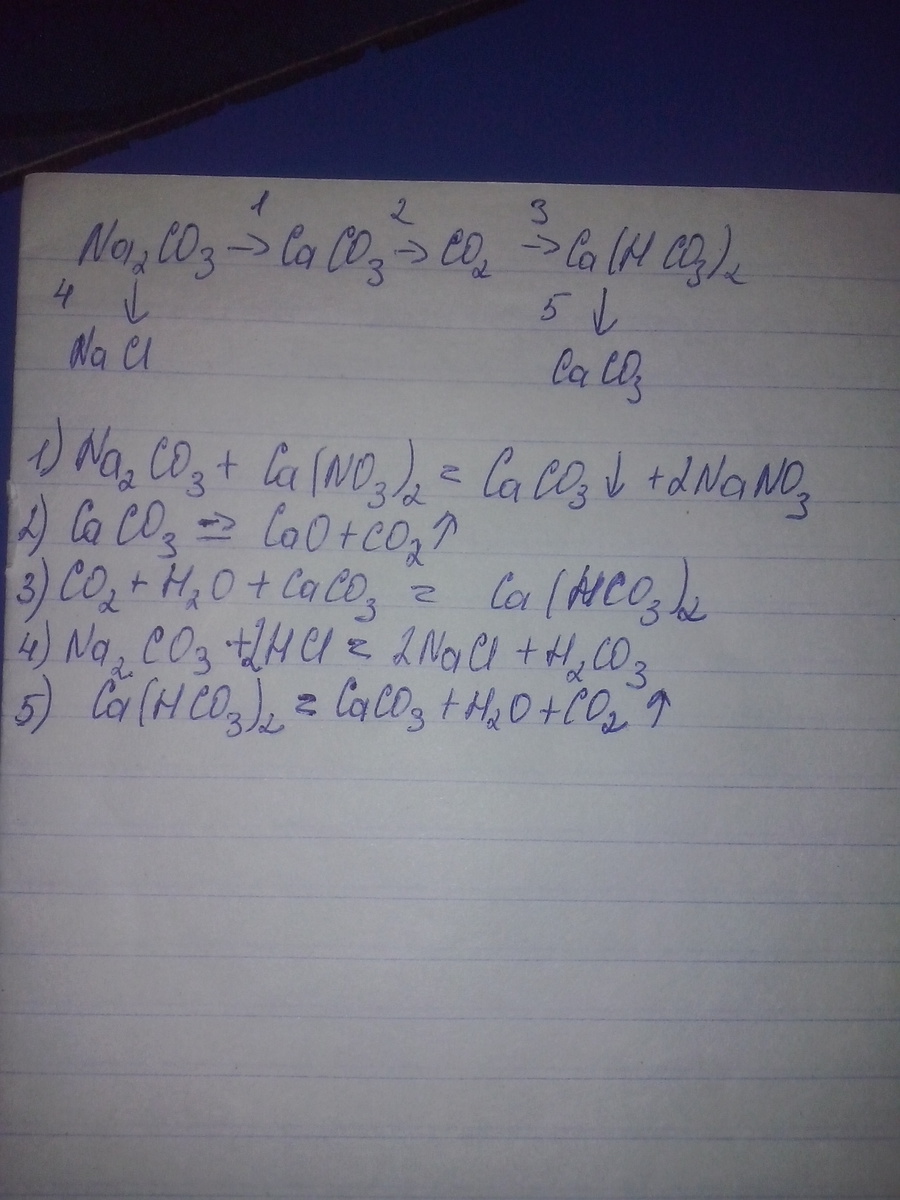 1 2 3
Na₂CO₃ → CaCO₃ → CO₂ → Ca(HCO₃)₂
4 ↓ 5 ↓
NaCl CaCO₃
1) Na₂CO₃ + Ca(NO₃)₂ = CaCO₃↓ + 2NaNO₃
2) CaCO₃ ⇒ CaO + CO₂↑
3) CO₂ + H₂O + CaCO₃ = Ca(HCO₃)₂
4) Na₂CO₃ + 2HCl = 2NaCl + H₂CO₃
5) Ca(HCO₃)₂ = CaCO₃ + H₂O + CO₂↑